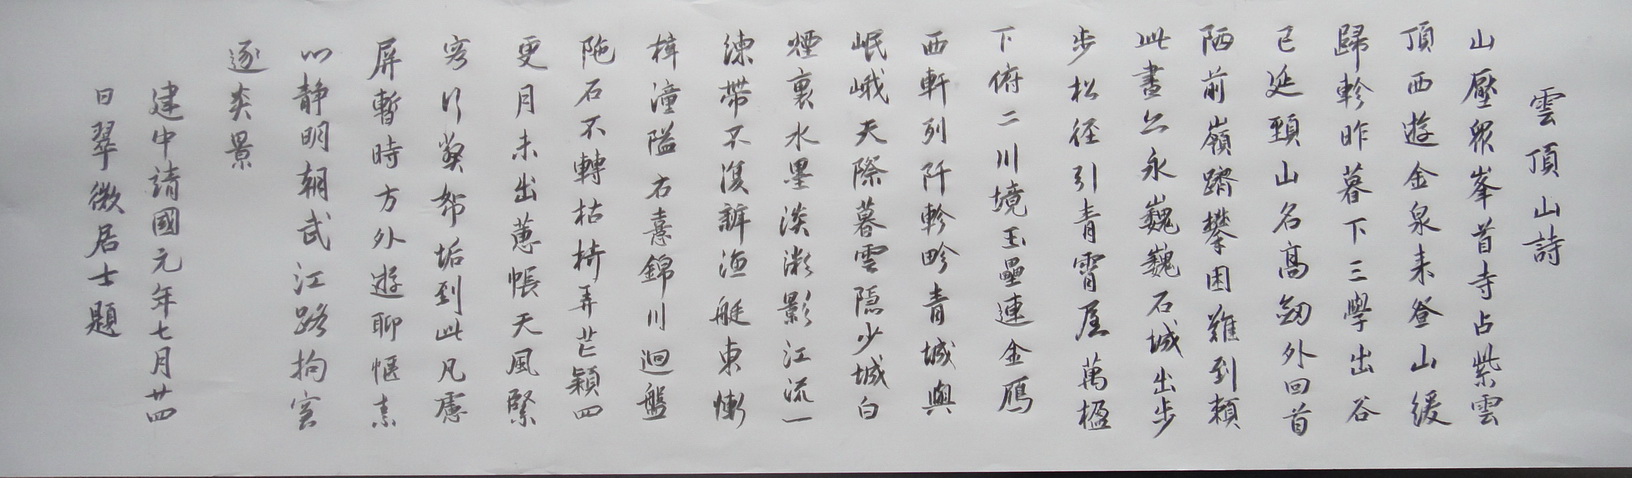 雲頂山詩
山壓眾峯首寺占紫雲
頂西遊金泉来登山緩
歸軫昨暮下三學出谷
已延頸山名高劒外回首
陋前嶺躋攀困難到賴
此晝云永巍巍石城出步
步松径引青霄屋萬楹
下俯二川境玉壘連金鴈
西軒列阡軫畛青城與
岷峨天際暮雲隱少城白
煙裏水墨淡激影江流一
練帶不復辨漁艇東慚
梓潼隘右憙錦川迴盤
陁石不轉枯椅弄芒穎四
更月未出蕙帳天風緊
客行獘舞垢到此凡慮
屏暫時方外遊聊愜素
以静明朝武江路拘窘
逐炎景
建中靖國元年七月廿四
日翠微居士題